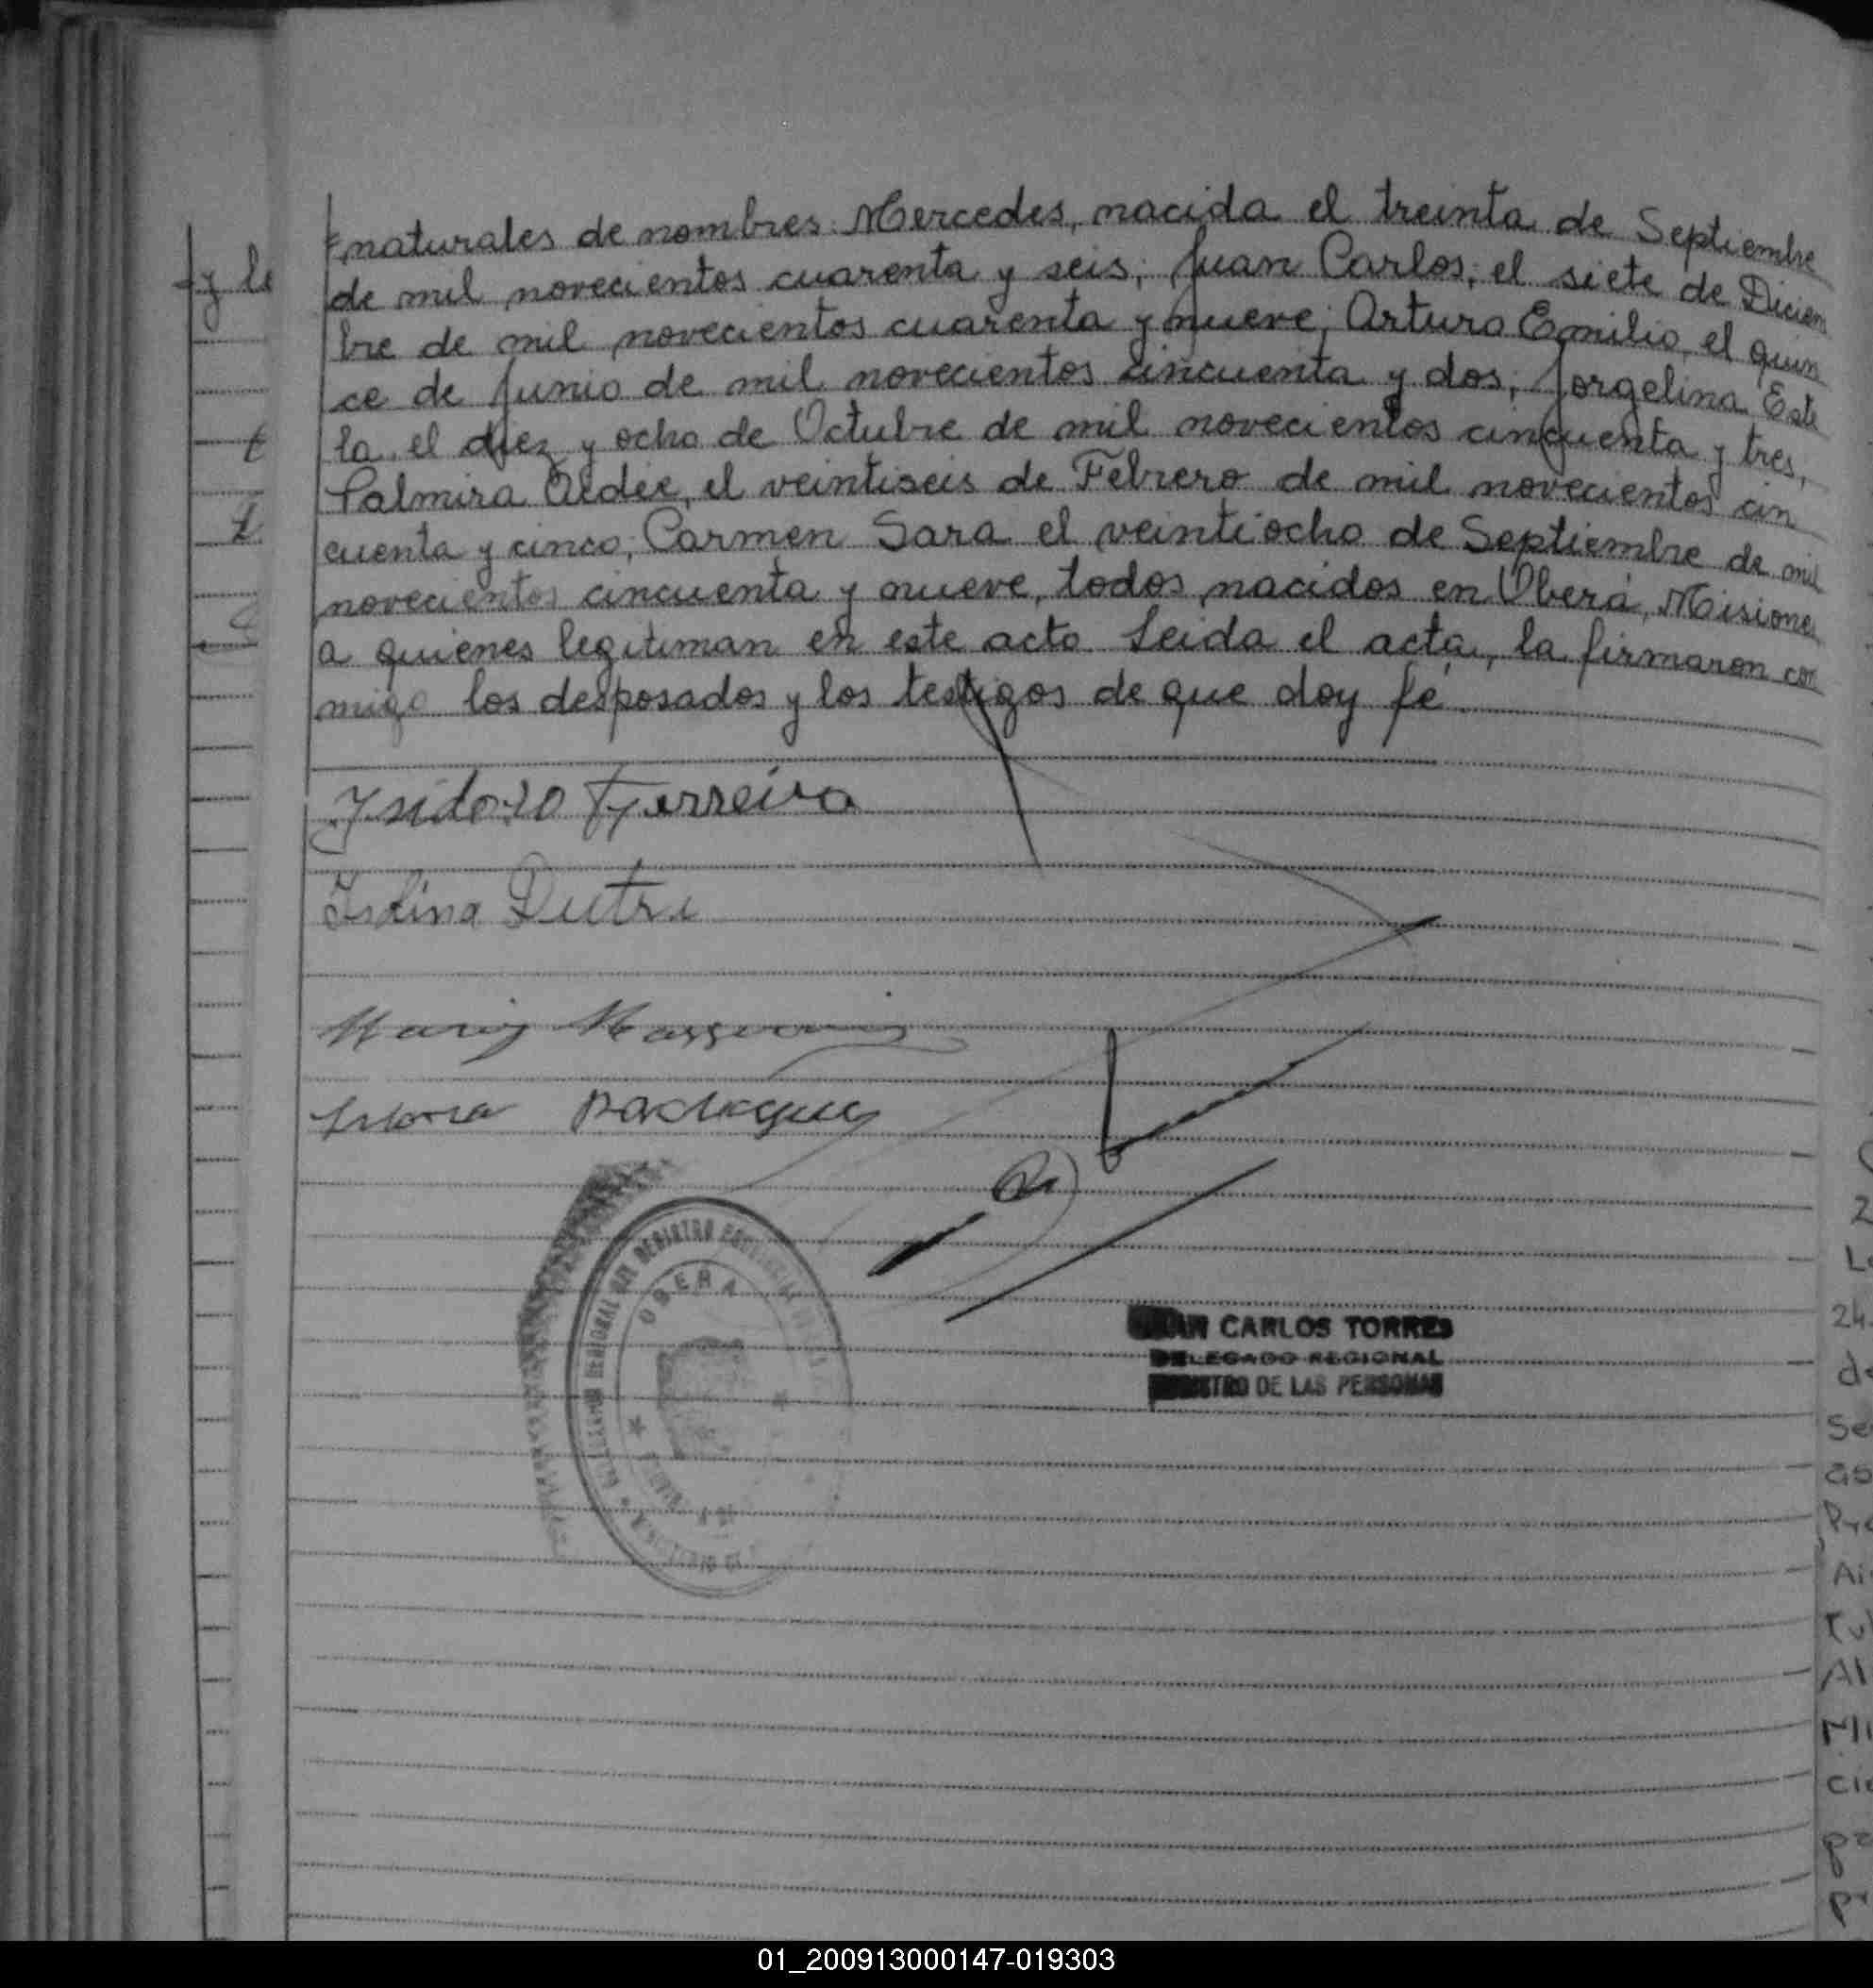 naturales de nombres: Mercedes, nacida el treinta de Septiembre
de mil novecientos cuarenta y seis; Juan Carlos, el siete de Diciem
bre de mil novecientos cuarenta y nueve; Arturo Emilio, el quin
ce de Junio de mil novecientos cincuenta y dos; Jorgelina Este
la, el diez y ocho de Octubre de mil novecientos cincuenta y tres,
Palmira el veintiseis de Febrero de mil novecientos cin
cuenta y cinco; Carmen Sara el veintiocho de Septiembre de mil
novecientos cincuenta y nueve, todos nacidos en Oberá, Misiones
a quienes legitiman en este acto. Leida el acta, la firmaron con
migo los desposados y los testigos de que doy fé
Isidoro Ferreira
Dutra
OBERA
CARLOS TORRES
DELEGADO REGIONAL
DE LAS PERSONAS
01_200913000147-019303